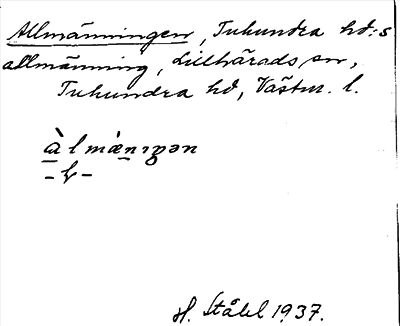 Allmänningen, Tuhundra hd:s
allmänning, Lillhärads sn,
Tuhundra hd, Västm. l.
àlmànıŋən
-b-
H. Ståhl 1937.